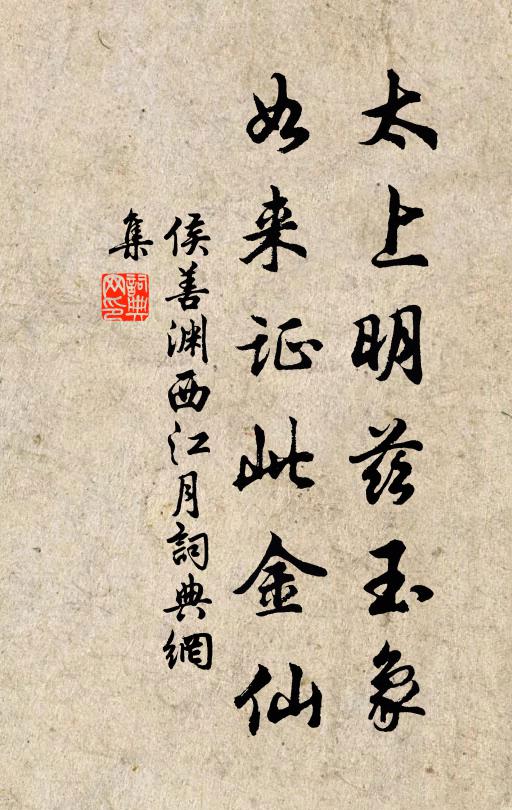 太上明兹玉象
如来证此金仙
侯善渊西江月詞典網
集
詞典网印